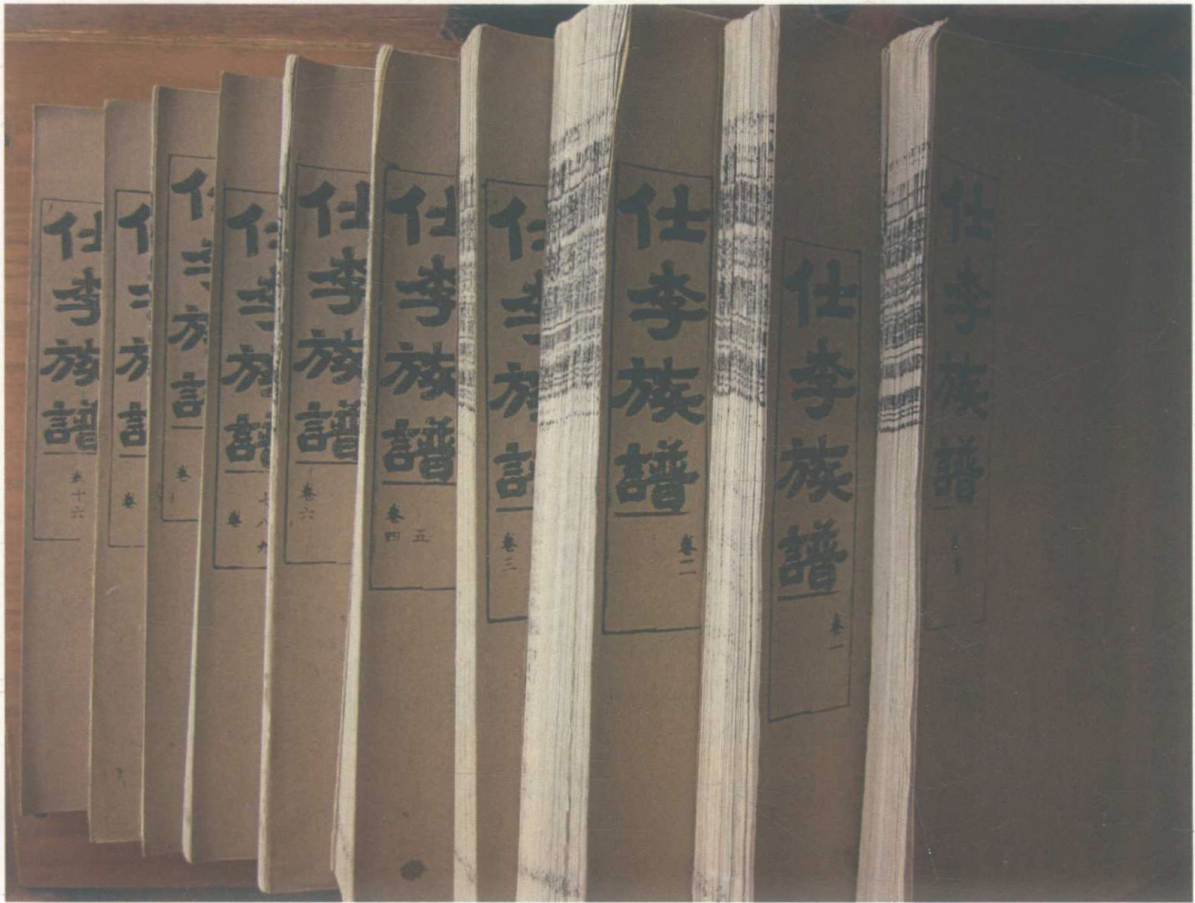 仕李族譜
仕李族譜
卷一
仕李族譜
卷二
仕李族譜
卷三
仕李族譜
卷四
五
仕李族譜
卷六
仕李族譜
卷
七八九
仕李族譜
卷
仕李族譜
卷
仕李族譜
卷十六